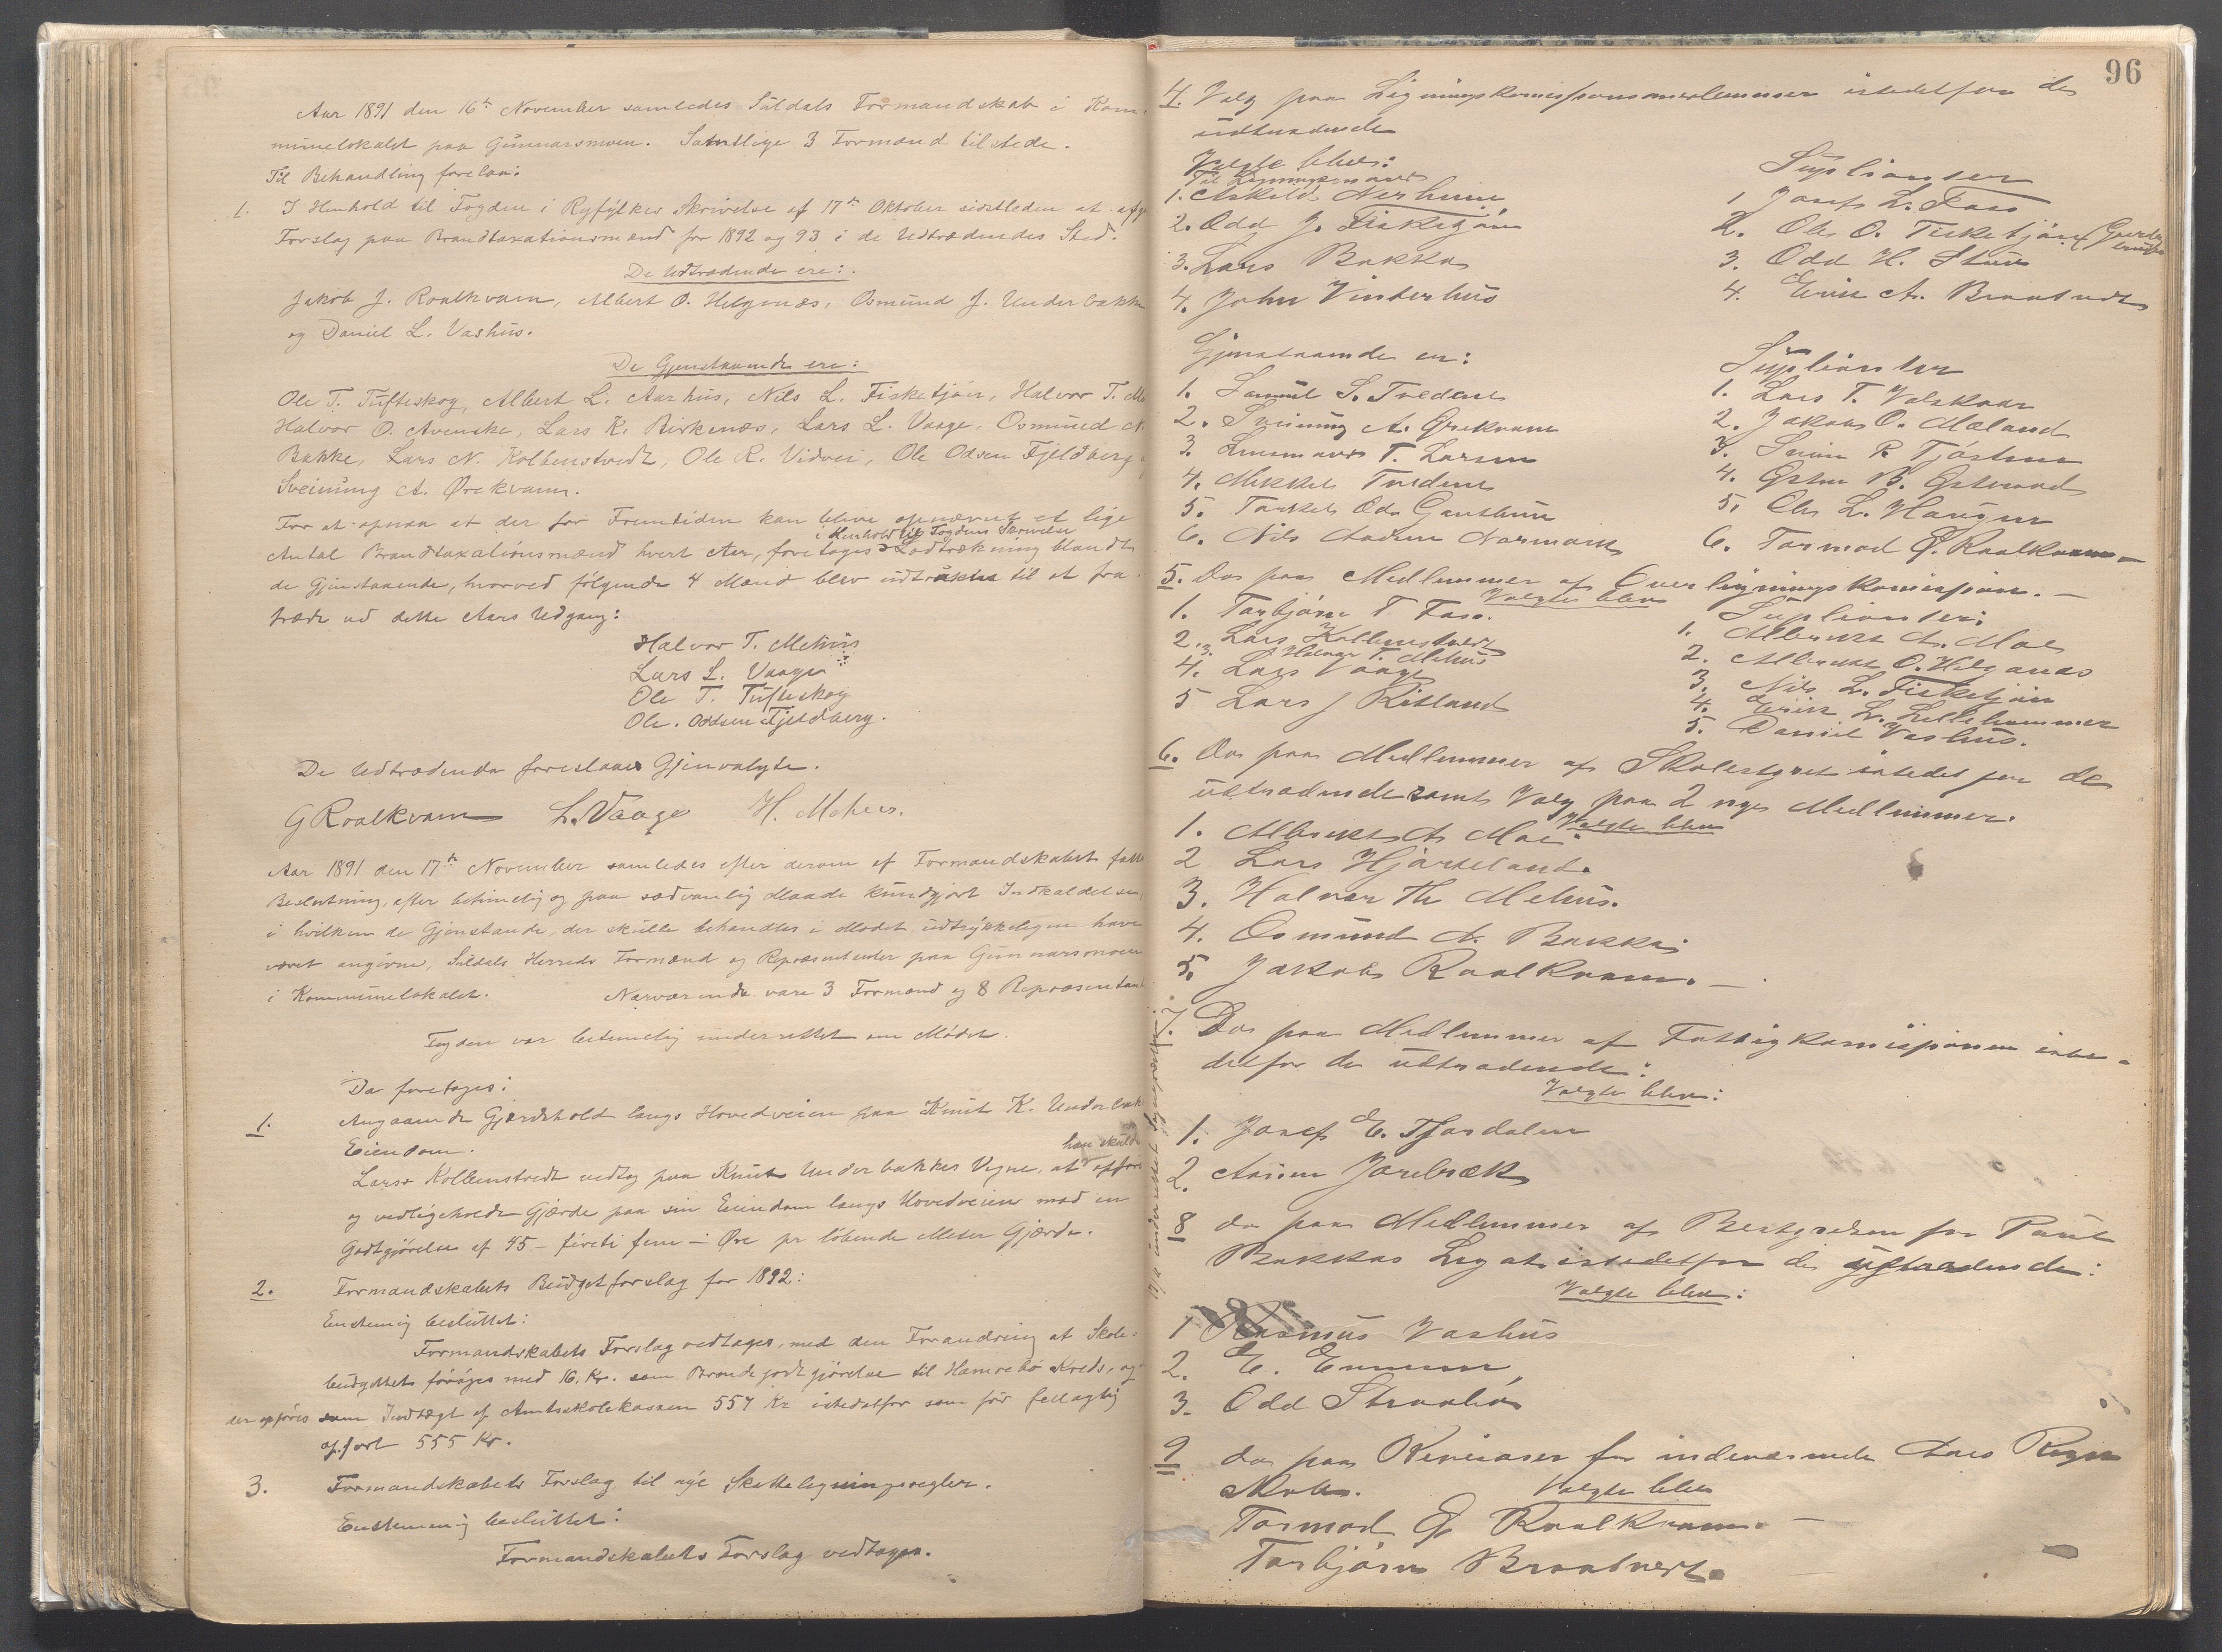 Aar 1891 den 16de November samledes Suldals Formandskab i Kom-
munelokalet paa Gunnarsmoen. Samtlige 3 Formænd tilstede.
Til Behandling forelaa:
1. I Henhold til Fogden i Ryfylkes Skrivelse af 17de Oktober sidstleden at afgi
Forslag paa Brandtaxationsmænd for 1892 og 93 i de Udtrædendes Sted.
De Udtrædende ere:
Jakob J. Roalkvam, Albert O. Helgenæs, Osmund J. Underbakke
og Daniel L. Vashus.
De Gjenstaaende ere:
Ole T. Tufteskog, Albert L. Aarhus, Nils L. Fisketjón, Halvor T. Me
Halvor O. Avenske, Lars K. Birkenæs, Lars L. Vaage, Osmund N.
Bakke, Lars N. Kolbenstvedt, Ole R. Vidvei, Ole Odsen Fjeldberg
Sveinung A. Ørekvam.
For at opnaa at der for Fremtiden kan blive opnævnt et lige
i Henhold til Fogdens Skrivelse
Antal Brandtaxationsmænd hvert Aar, foretoges Lodtrækning blandt
de Gjenstaaende, hvorved følgende 4 Mænd blev udtrukne til at fra-
træde ved dette Aars Udgang:
Halvor T. Mehus
Lars L. Vaage
Ole T. Tufteskog
Ole Odsen Fjeldberg.
De Udtrædende foreslaaes Gjenvalgte.
G Roalkvam L. Vaage H. Mehus.
Aar 1891 den 17de November samledes efter derom af Formandskabet fatte
Beslutning, efter betimelig og paa sædvanlig Maade kundgjort Indkaldelse,
i hvilken de Gjenstande, der skulle behandles i Mødet udtrykkeligen have
været angivne, Suldals Herreds Formænd og Repræsentanter paa Gunnarsmoen
i Kommunelokalet. Nærværende vare 3 Formænd og 8 Repræsentant
Fogden var betimelig underrettet om Mødet.
Da foretoges:
1. Angaaende Gjærdehold langs Hovedveien paa Knut K. Underbak
Eiendom.
han skulde
Lars Kolbenstvedt vedtog paa Knut Underbakkes Vegne, at opføre
og vedligeholde Gjærde paa sin Eiendom langs Hovedveien mod en
Godtgjørelse af 45 - fireti fem - Øre pr løbende Meter Gjærde.
2. Formandskabets Budgetforslag for 1892:
Enstemig besluttet:
Formandskabets Forslag vedtages, med den Forandring at Skole-
budgettet forøges med 16 Kr. som Brændegodtgjørelse til Hamrebø Kreds, og
der opføres som Indtægt af Amtsskolekassen 557 Kr istedetfor som før feilagtig
opført 555 Kr.
3. Formandskabets Forslag til nye Skatteligningsregler.
Enstemmig besluttet:
Formandskabets Forslag vedtages.
96
4. Valg paa Ligningskomissionsmedlemmer istedetfor de
udtrædende
Valgte blev:
Til Ligningsmænd
1. Askild Nerheim
2. Odd J. Fisketjøn
3. Lars Bakka
4. John Vinterhus
Suplianter
1 Josef L. Foss
2. Ole O. Fisketjøn
3. Odd H. Stuve
4. Erik A. Braatvedt
Gjenstaaende er:
1. Samuel S. Tveden
2. Sveinung A. Ørekvam
3. Lensmand T. Larsen
4. Mikkel Tveden
5. Torkel Ods. Gauthun
6. Nils Aadnen Normark
Suplianter
1. Lars T. Valskaar
2. Jakob O. Mæland
3. Svein R. Tjøstem
4. Østen B. Østerød
5. Ole L. Haugen
6. Tormod G. Roalkvam
5. Do paa Medlemmer af Overligningskomissjonen.
Valgte blev
1. Torbjørn T Foss.
2. Lars Kolbenstvedt
3. Halvor T. Mehus
4. Lars Vaage
5 Lars J Ritland
Suplianter:
1. Albrekt A. Moe
2. Albrekt O. Helganes
3. Nils L. Fisketjøn
4. Eirik L. Lillehammer
5. Daniel Vashus.
6. Do paa Medlemmer af Skolestyret istedet for de
udtrædende samt Valg paa 2 nye Medlemmer.
Valgte blev
1. Albrekt A Moe
2 Lars Hjorteland.
3. Halvor Th Mehus.
4. Osmund N. Bakka
5. Jakob Roalkvam.
7. Do paa Medlemmer af Fattigkomissjonen iste-
detfor de udtrædende:
Valgte blev:
1. Josef E. Tjordalen
2. Aanen Jorebræk
8 do paa Medlemmer af Bestyrelsen for Poul
Bakkas Legat istedetfor de udtrædende:
Valgte blev:
1 Rasmus Vashus
2. E. Ennem
3. Odd Straabø
9 do paa Revisorer for indeværende Aars Regn
skaber.
Valgte blev
Tormod G Roalkvam.
Torbjørn Braatvedt.